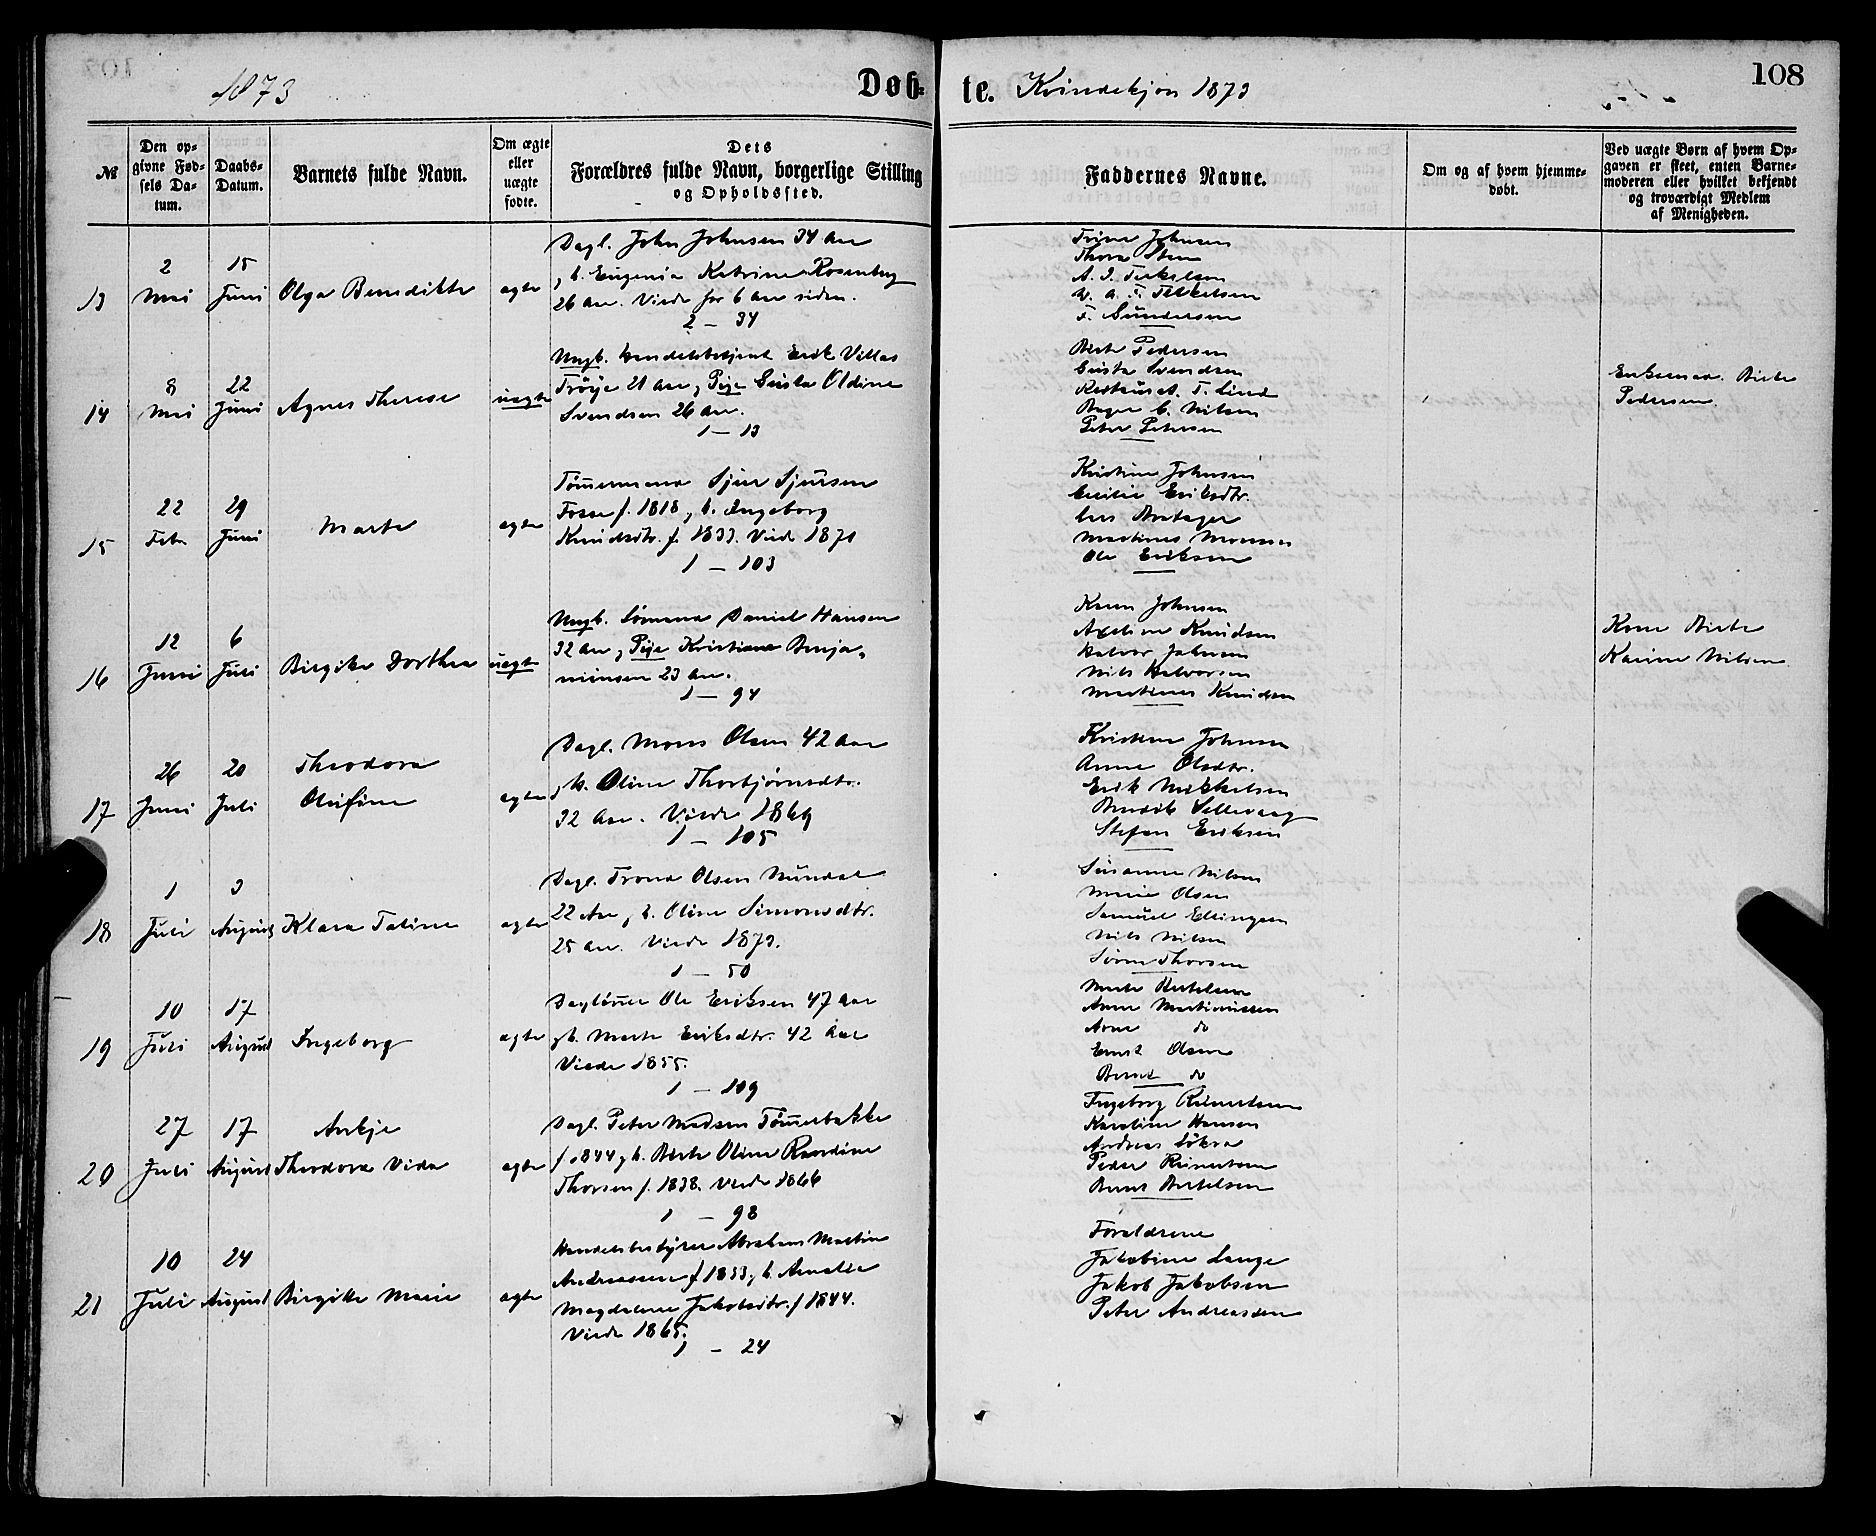 1873
Døb-
te.
Kvindekjøn 1873
108
№
Den op-
givne Fød-
sels Da-
tum.
Daabs-
Datum.
Barnets fulde Navn.
Om ægte
eller
uægte
fødte.
Dets
Forældres fulde Navn, borgerlige Stilling
og Opholdssted.
Faddernes Navne.
Om og af hvem hjemme-
døbt.
Ved uægte Børn af hvem Op-
gaven er skeet, enten Barne-
moderen eller hvilket bekjendt
og troværdigt Medlem
af Menigheden.
13
2
Mai
15
Juni
Olga Benedikte
ægte
Dagl. John Johnsen 34 Aar
, h. Eugenia Katrine Rosenberg
26 Aar. Viede for 6 Aar siden.
2 — 34
Trine Johnsen
Thora
A. I. Terkelsen
F. Sündersen
14
8
Mai
22
Juni
Agnes Therese
uægte
Ungk. Handelsbetjent Erik Villas
Trøye 21 Aar, Pige Gusta Oldine
Svendsen 26 Aar.
1 — 13
Birte Pedersen
Gusta Svendsen
T. Lind
Bager C. Nilsen
Peter Petersen
Birte
Pedersen
15
22
Febr
29
Juni
Marte
ægte
Tømmermand Sjur Sjursen
Fosse f. 1818, h. Ingeborg
Knudsdtr. f. 1833. Viede 1871
1 — 103
Kristine Johnsen
Cecilie Eriksdtr.
Martines Monsen
Ole Eriksen
16
12
Juni
6
Juli
Birgitte Dorthea
uægte
Ungk. Sømand Daniel Hansen
32 Aar, Pige Kristiane Benja-
minsen 23 Aar.
1 — 94
Karen Johnsen
Axeline Knudsen
Halvor Johnsen
Nils Halvorsen
Martines Knudsen
Kone Birte
Karine Nilsen
17
26
Juni
20
Juli
Theodora
Olufine
ægte
Dagl. Mons Olsen 42 Aar
, h. Oline Thorbjørnsdtr.
32 Aar. Viede 1869
1 — 105
Kristine Johnsen
Anne Olsdtr.
Erik Mikkelsen
Bendik Sellevaag
Stefan Eriksen
18
1
Juli
3
August
Klara Taline
ægte
Dagl. Trond Olsen Mundal
22 Aar, h. Oline Simonsdtr.
25 Aar. Viede 1873.
1 — 50
Susanne Nilsen
Marie Olsen
Samuel Ellingsen
Nils Nilsen
Søren Thorsen
19
10
Juli
17
August
Ingeborg
ægte
Dagløner Ole Eriksen 47 Aar
, h. Marte Eriksdtr. 42 Aar
Viede 1855.
1 — 109
Marte Bertelsen
Anne Martinussen
Arne do
Ernst Olsen
Bernt do
20
27
Juli
17
August
Ankje
Theodora Vida
ægte
Dagl. Peter Madsen Tømmerbakke
f. 1844, h. Birte Oline Rasdine
Thorsen f. 1838. Viede 1866
1 — 98
Ingeborg Reinertsen
Karoline Hansen
Andreas Løkra
Peder Reinertsen
Bernt Bertelsen
21
10
Juli
24
August
Birgitte Marie
ægte
Handelsbestyrer Abraham Martin
Andreassen f. 1833, h. Amalie
Magdalene Jakobsdtr. f. 1844.
Viede 1865.
1 — 24
Forældrene
Jakobine Lange
Jakob Jakobsen
Peter Andreassen